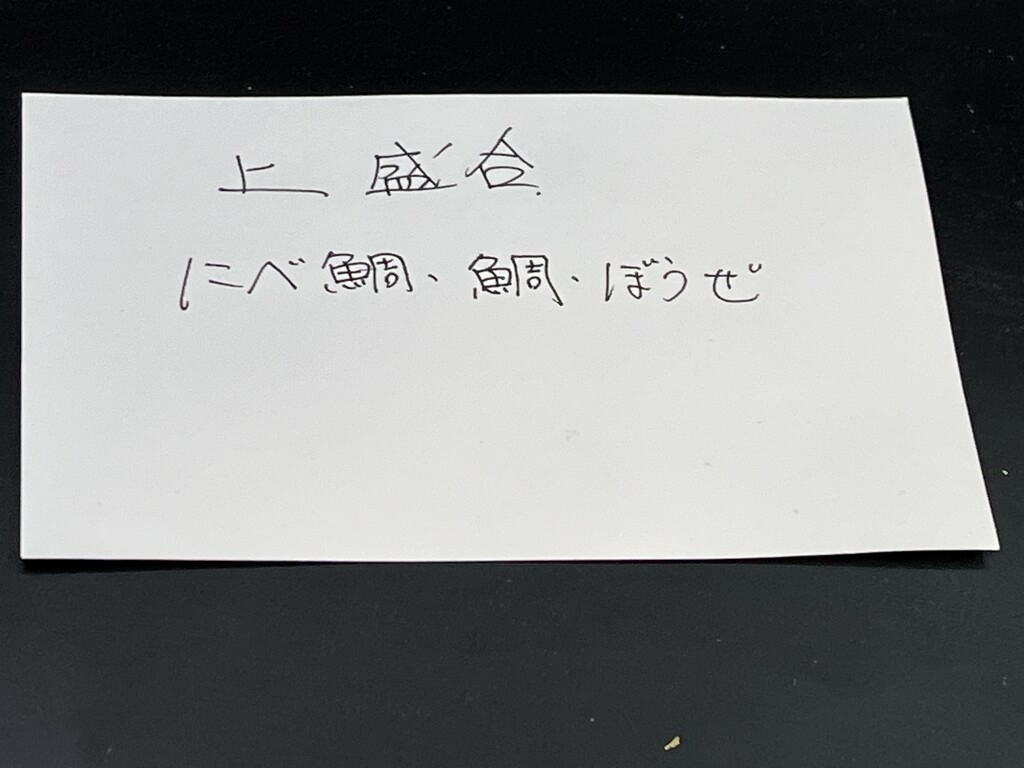 上 盛合
にべ鯛、鯛、ぼうぜ